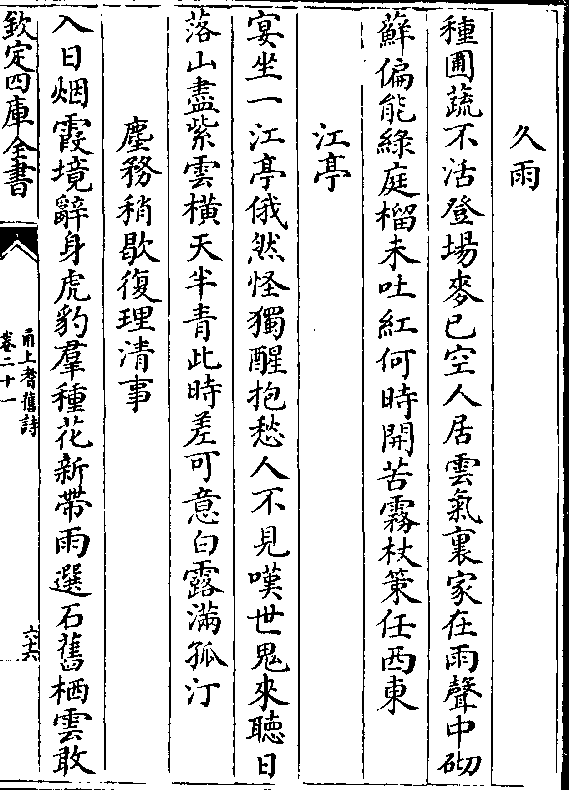 久雨
種圃蔬不活登場麥已空人居雲氣裏家在雨聲中砌
蘚偏能綠庭榴未吐紅何時開苦霧杖策任西東
江亭
宴坐一江亭俄然怪獨醒抱愁人不見嘆世鬼來聽日
落山盡紫雲橫天半青此時差可意白露滿孤汀
塵務稍歇復理清事
入日烟霞境辭身虎豹羣種花新帶雨選石舊栖雲敢
欽定四庫全書
甬上耆舊詩
卷二十一
六六